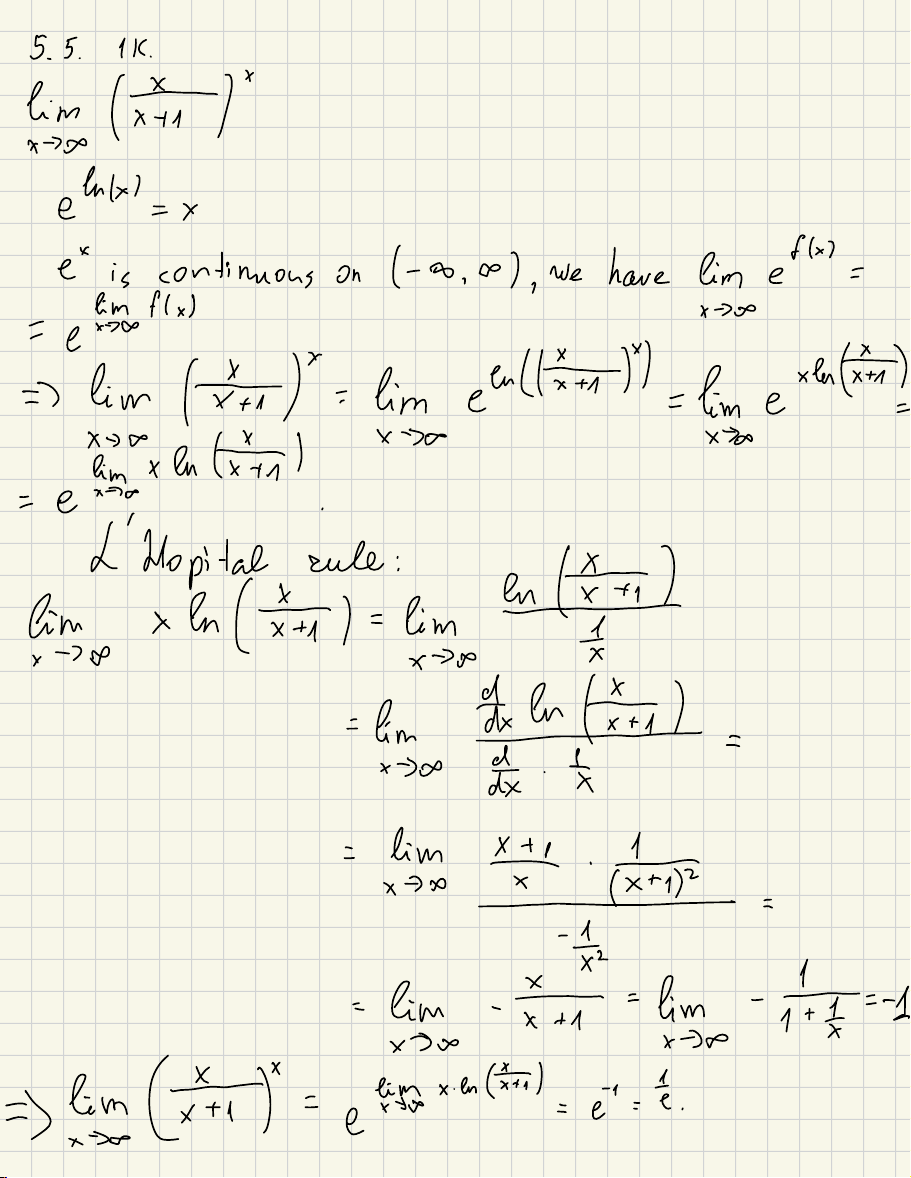 5.5. 1K.
lim_{x→∞} (x/(x+1))^x
e^{ln(x)} = x
e^x is continuous on (-∞, ∞), we have lim_{x→∞} e^{f(x)} =
= e^{lim_{x→∞} f(x)}
=> lim_{x→∞} (x/(x+1))^x = lim_{x→∞} e^{ln((x/(x+1))^x)} = lim_{x→∞} e^{x ln(x/(x+1))} =
= e^{lim_{x→∞} x ln(x/(x+1))}
L'Hopital rule:
lim_{x→∞} x ln(x/(x+1)) = lim_{x→∞} ln(x/(x+1)) / (1/x)
= lim_{x→∞} (d/dx ln(x/(x+1))) / (d/dx · 1/x) =
= lim_{x→∞} ((x+1)/x · 1/(x+1)^2) / (-1/x^2) =
= lim_{x→∞} - x/(x+1) = lim_{x→∞} - 1/(1 + 1/x) = -1
=> lim_{x→∞} (x/(x+1))^x = e^{lim_{x→∞} x·ln(x/(x+1))} = e^{-1} = 1/e.